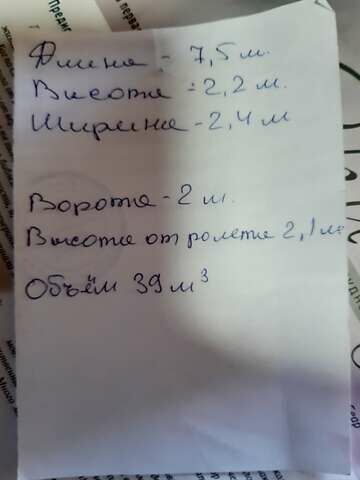 Длина - 7,5 м.
Висота - 2,2 м.
Ширина - 2,4 м
Ворота - 2 м.
Высота от ролета 2,1 м
Объём 39 м³